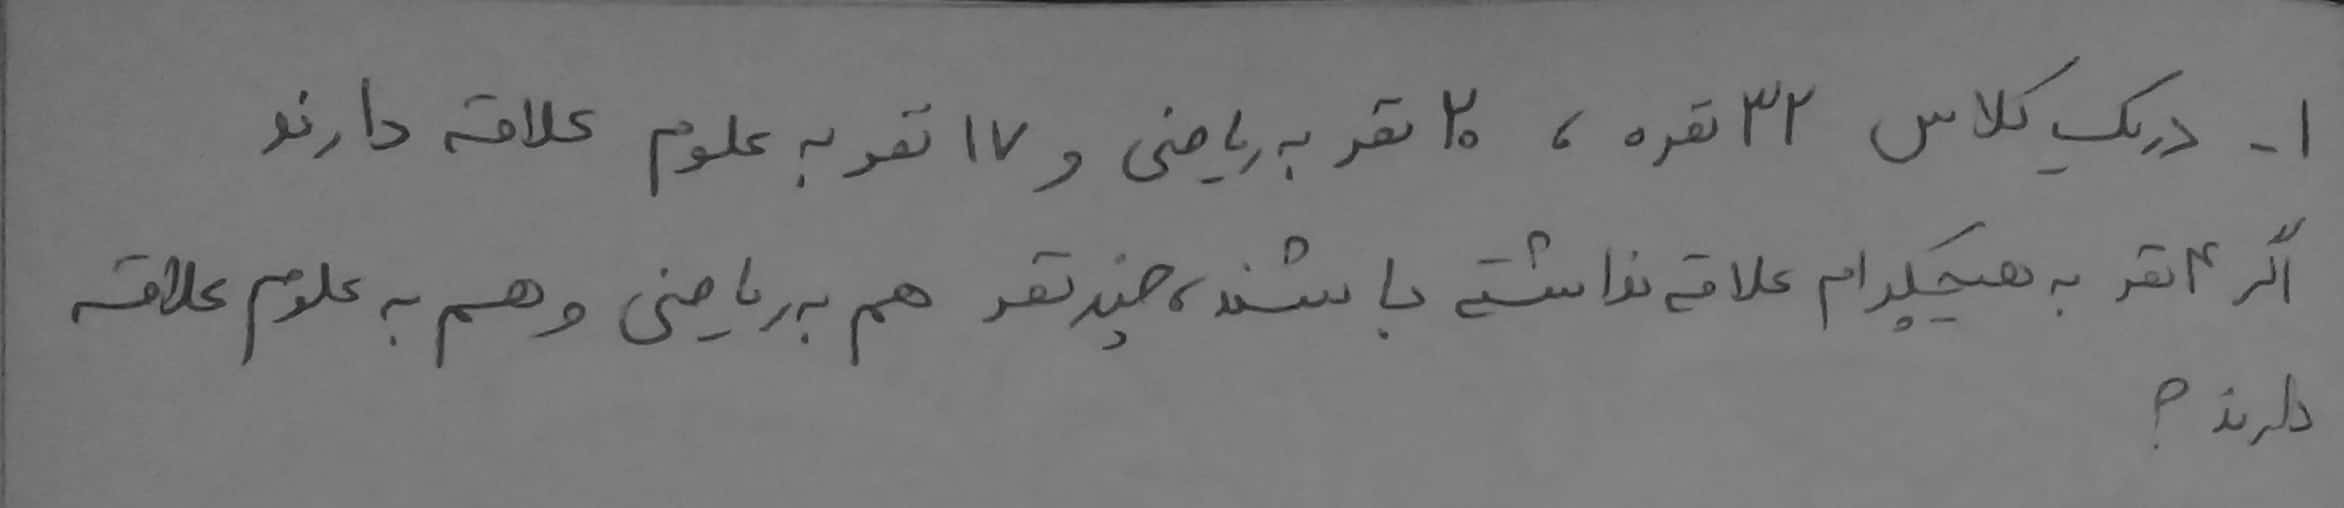 ۱- در یک کلاس ۳۲ نفره ، ۲۰ نفر به ریاضی و ۱۷ نفر به علوم علاقه دارند
اگر ۴ نفر به هیچکدام علاقه نداشته باشند، چند نفر هم به ریاضی و هم به علوم علاقه
دارند ؟